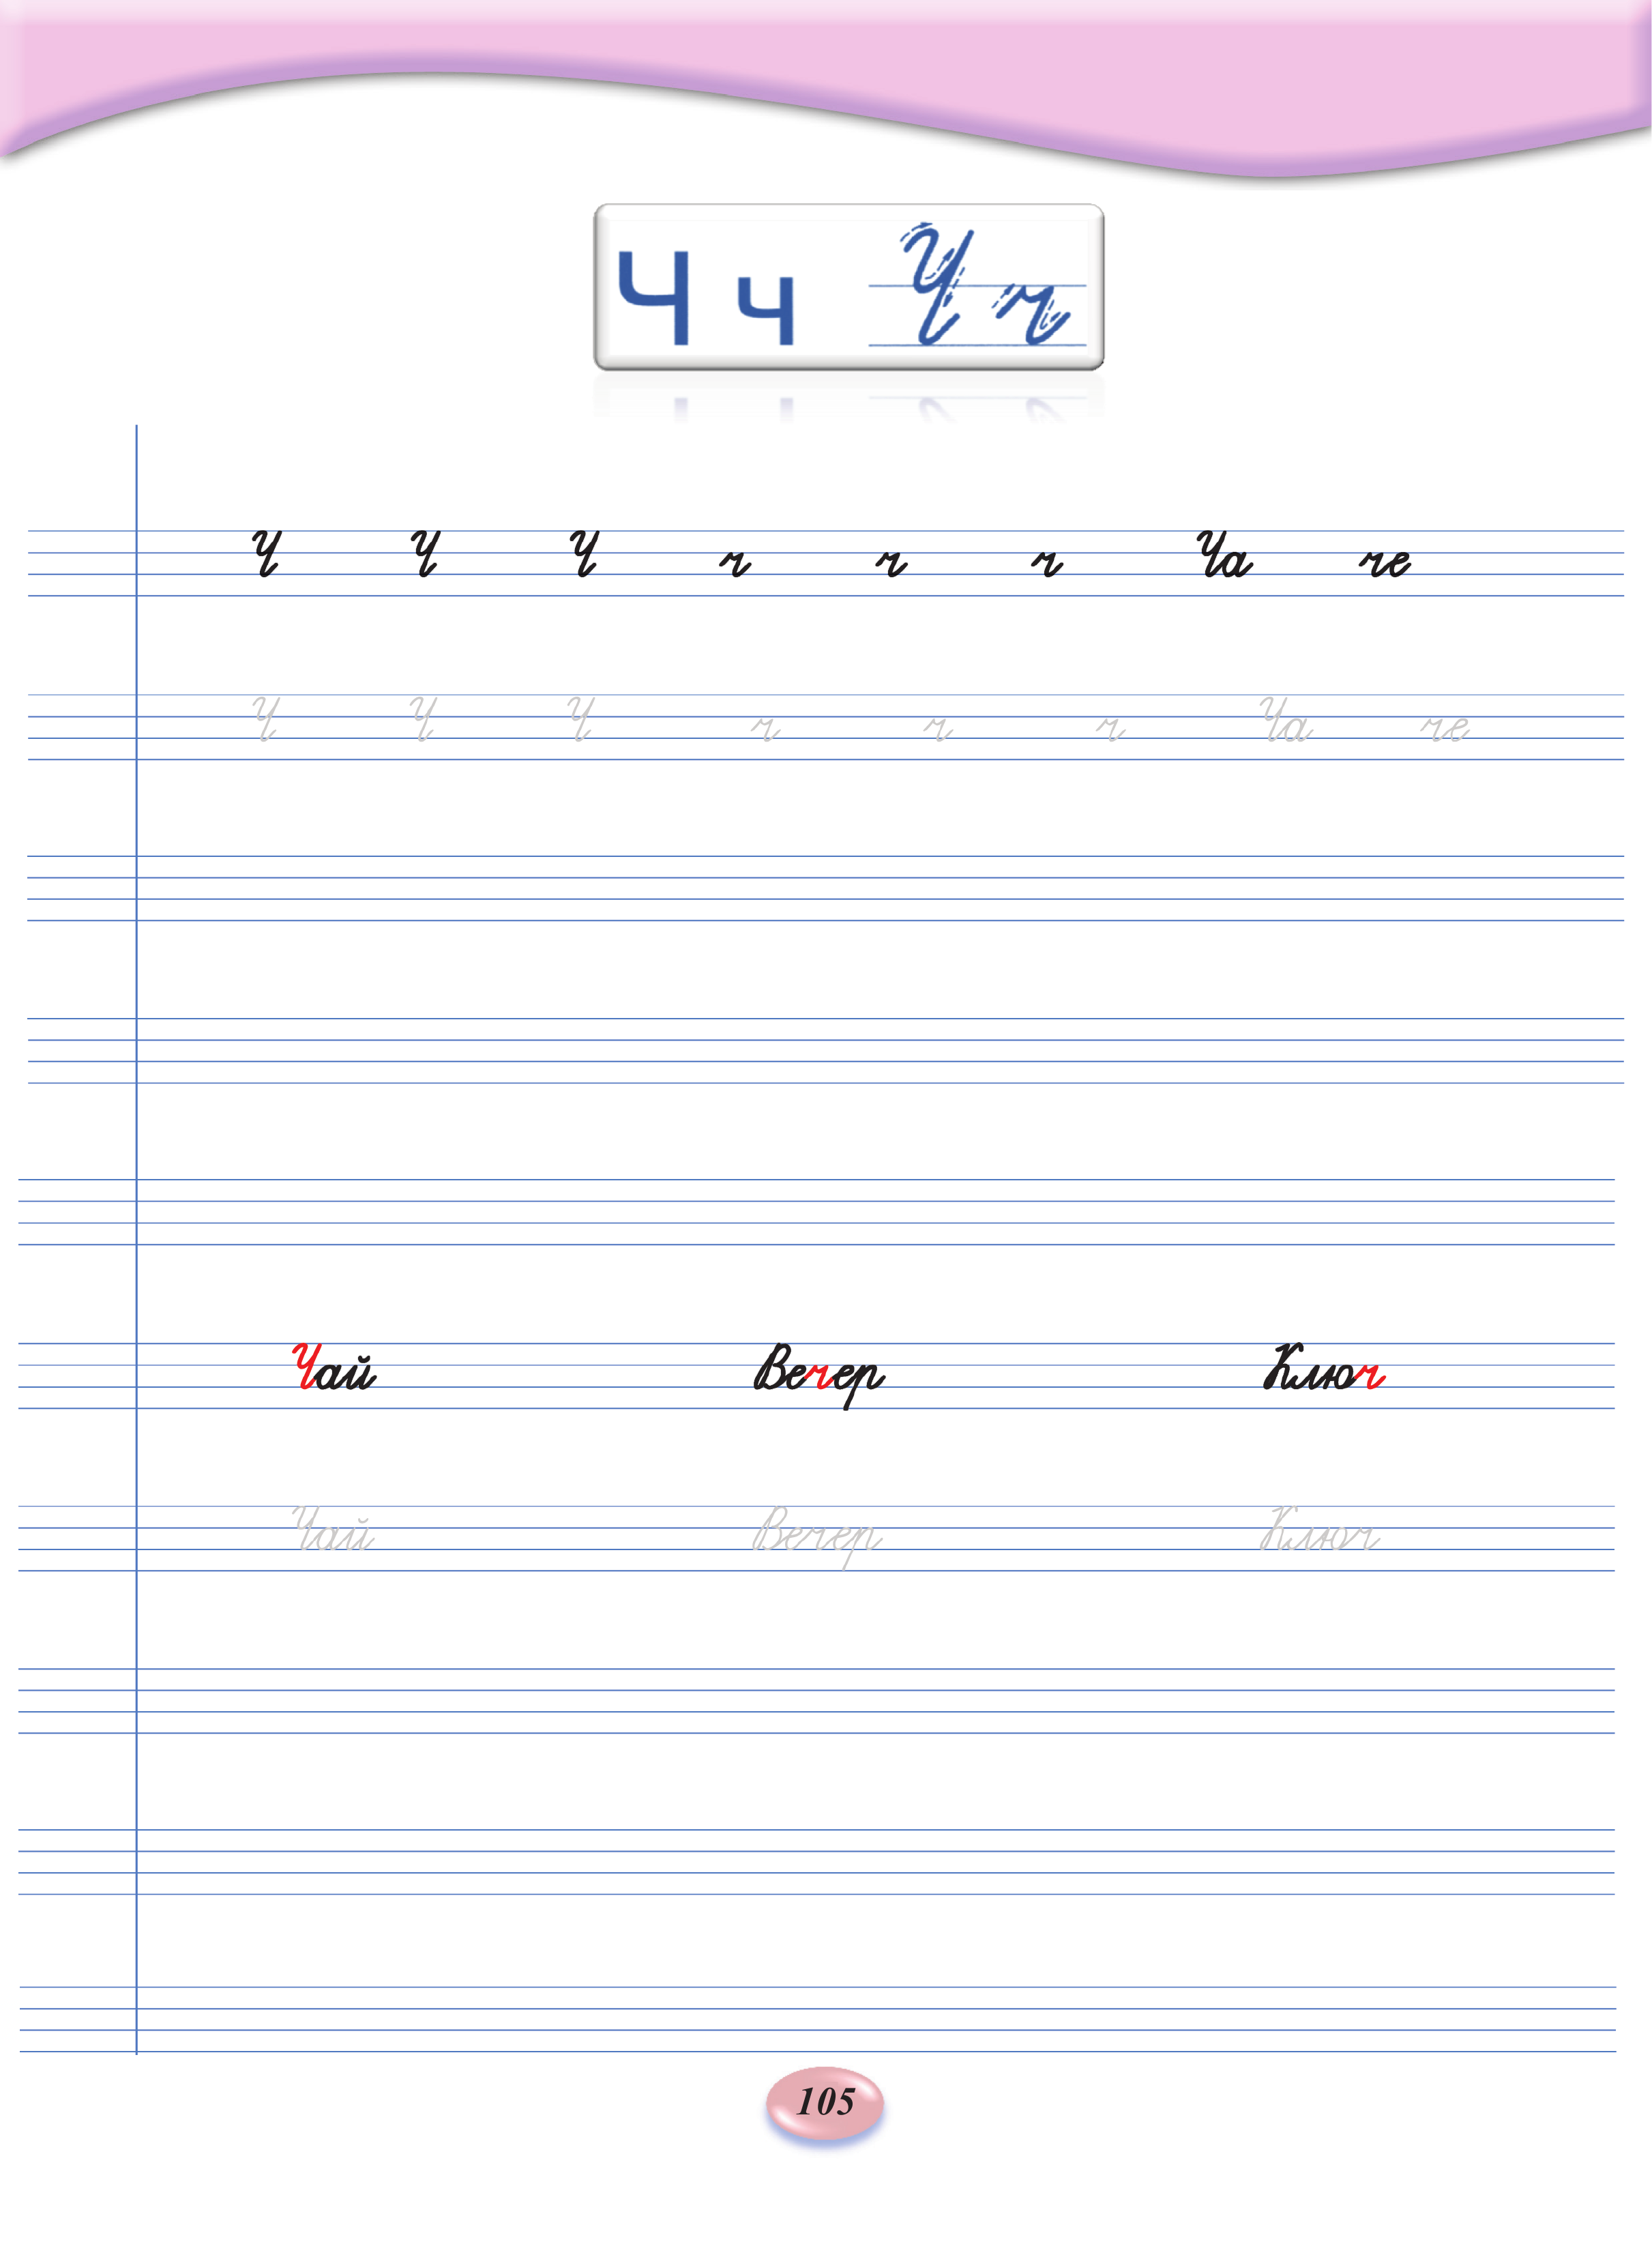 Ч ч Ч ч
Ч Ч Ч ч ч ч Ча че
Ч Ч Ч ч ч ч Ча че
Чай Вечер Ключ
Чай Вечер Ключ
105